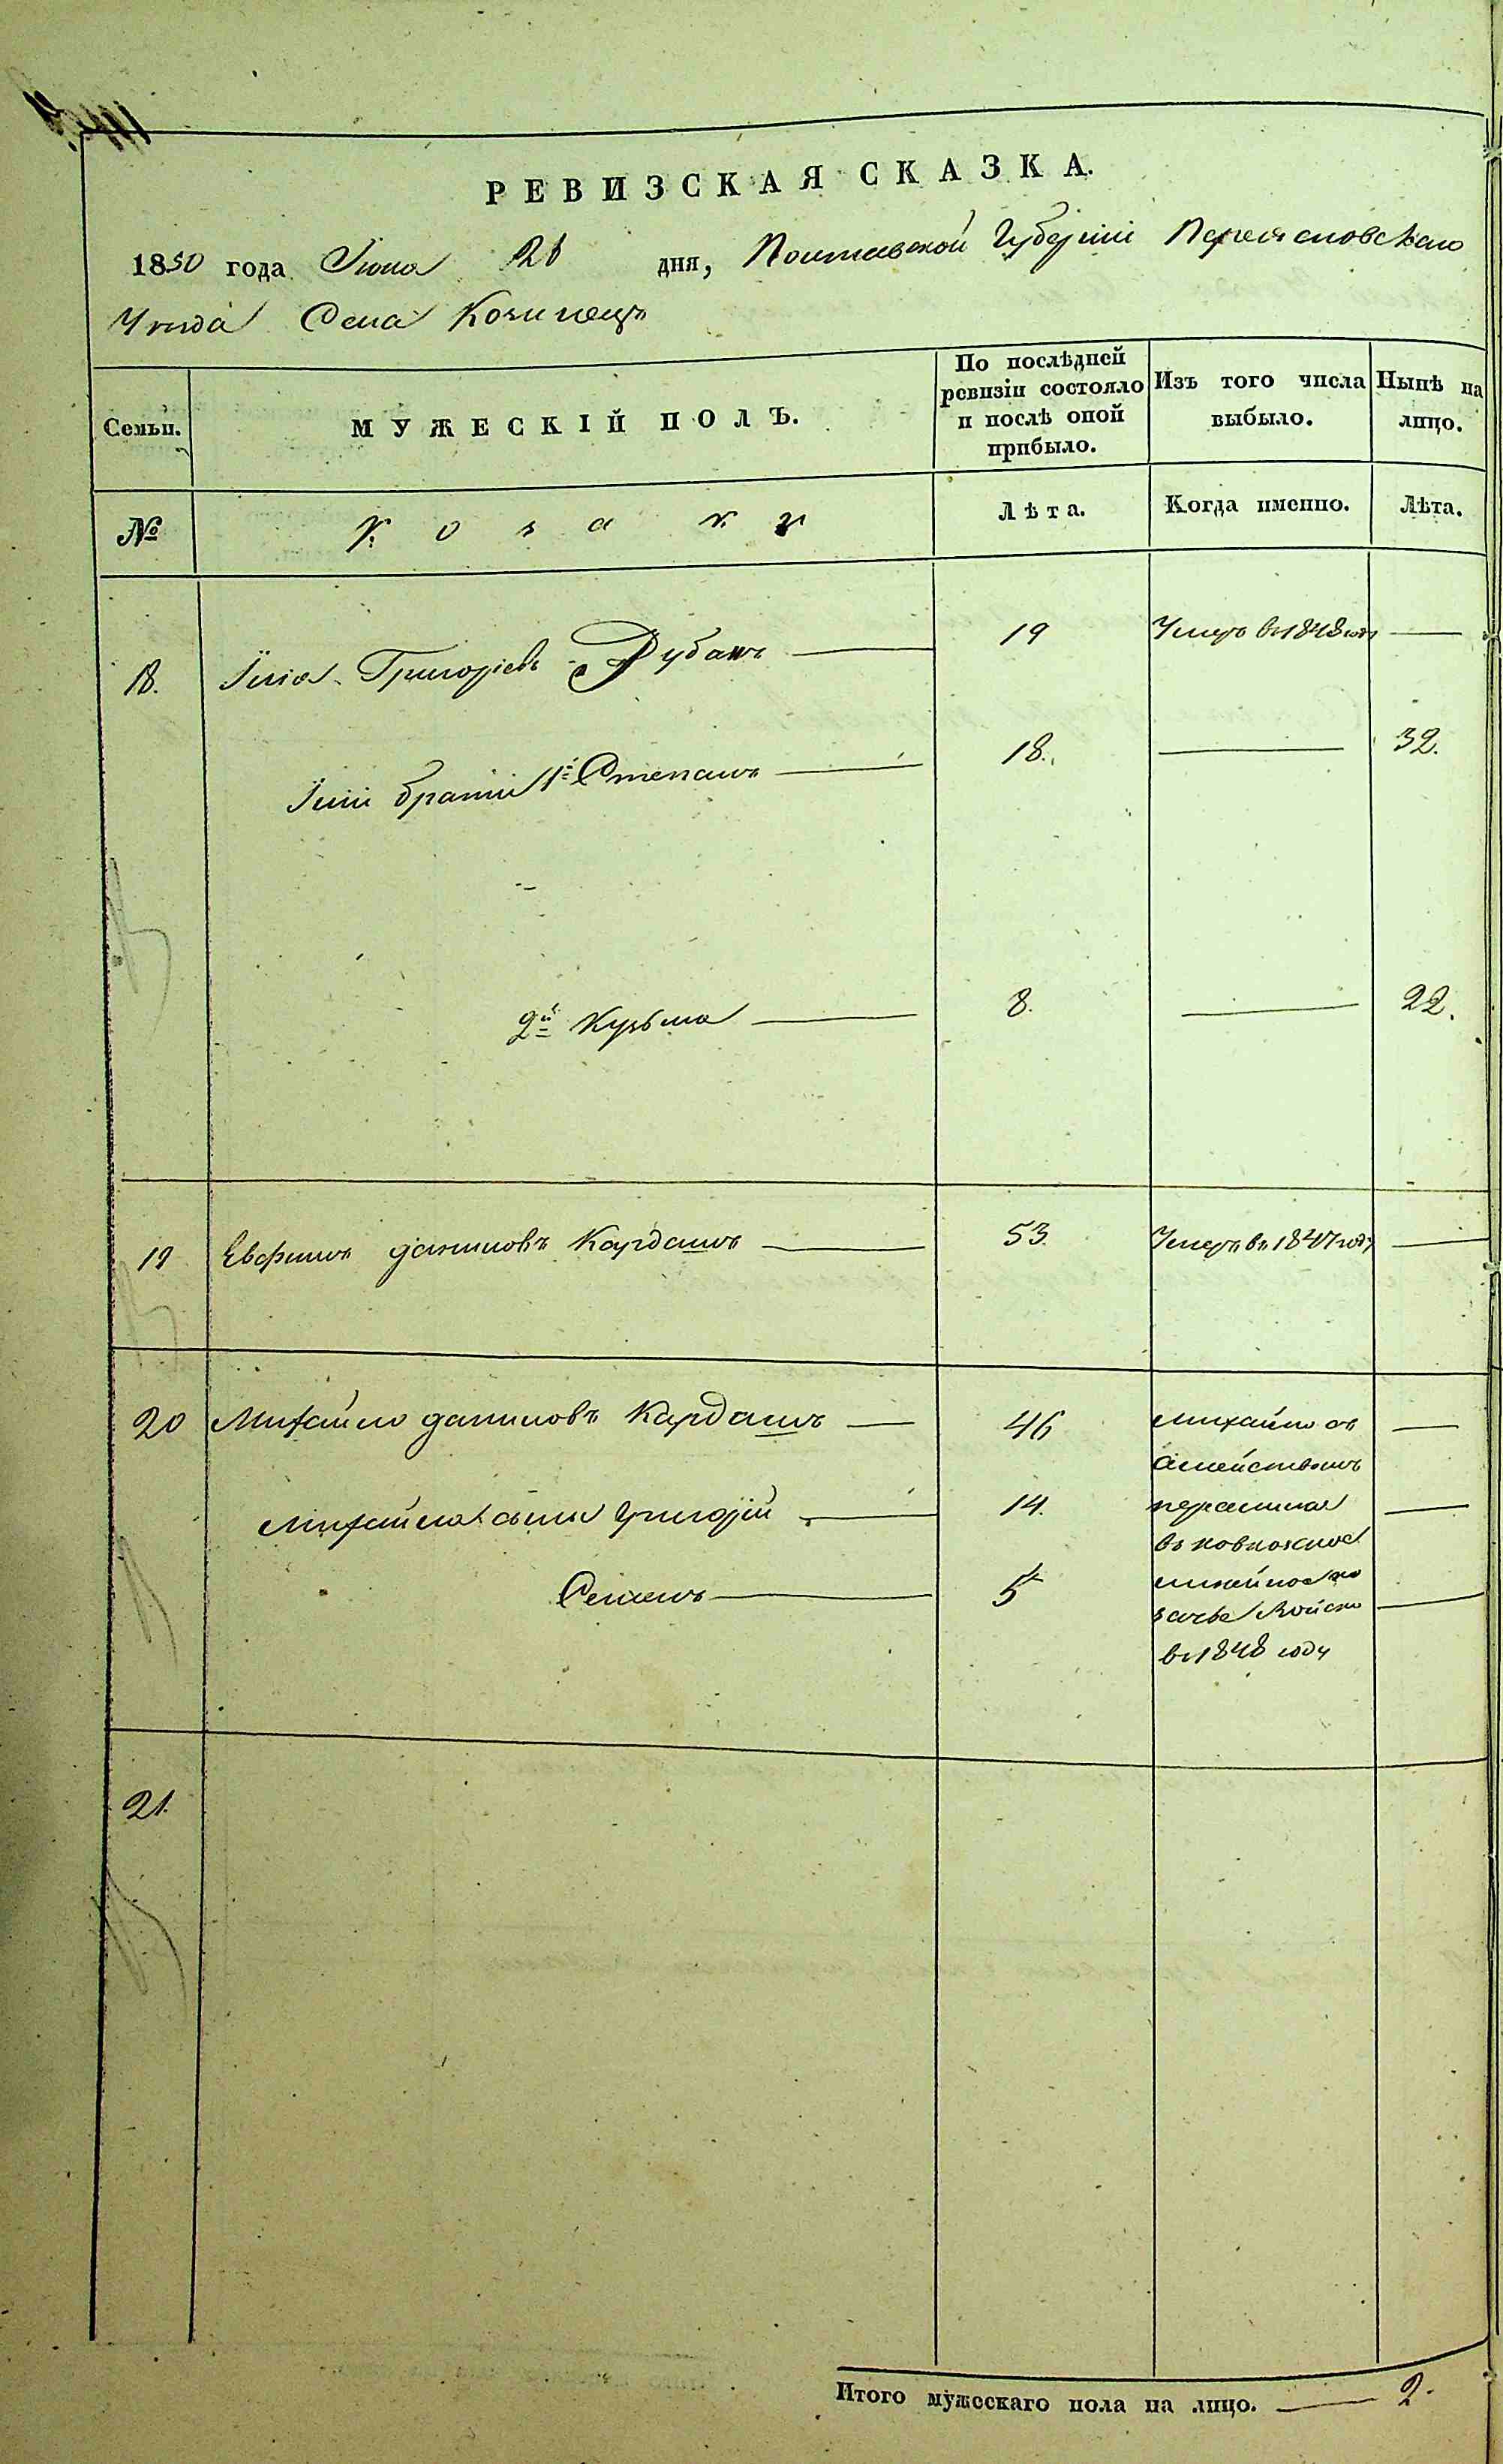 РЕВИЗСКАЯ СКАЗКА.
1850 года Июня 26 дня, Полтавской Губерніи Переясловскаго
Уезда Села Козинецъ
Семьи.
МУЖЕСКІЙ ПОЛЪ.
По послѣдней ревизіи состояло и послѣ оной прибыло.
Изъ того числа выбыло.
Нынѣ на лицо.
№
Козаки
Лѣта.
Когда именно.
Лѣта.
18. Илія Григоріевъ Рубанъ 19 Умеръ въ 1848 году
Иліи братья 1й Степанъ 18. 32.
2й Кузьма 8. 22.
19 Евфимъ Даниловъ Кардашъ 53. Умеръ въ 1847 году
20 Михайло Даниловъ Кардашъ 46 Михайло съ
семействомъ
Михайла сыны Григорій 14. перечислен
въ
Семенъ 5 линейное ка
зачье Войско
въ 1848 году
21.
Итого мужескаго пола на лицо. 2.